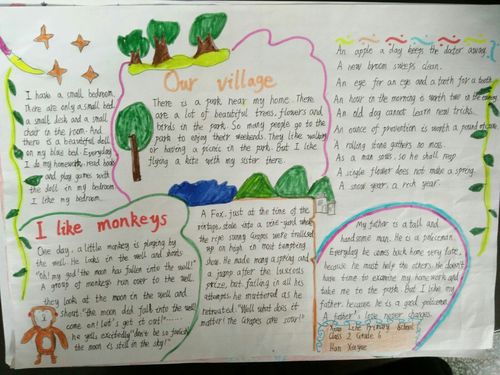 I have a small bedroom.
There are only a small bed
a small desk and a small
chair in the room. And
there is a beautiful doll
on my blue bed. Everyday
I do my homework, read books
and play games with
the doll in my bedroom
I like my bedroom.
Our village
There is a park near my home. There
are a lot of beautiful trees, flowers and
birds in the park. So many people go to the
park to enjoy their weekends. They like walking
or having a picnic in the park. But I like
flying a kite with my sister there.
An apple a day keeps the doctor away.
A new broom sweeps clean.
An eye for an eye and a tooth for a tooth.
An hour in the morning is worth two in the evening
An old dog cannot learn new tricks.
An ounce of prevention is worth a pound of cure.
A rolling stone gathers no moss.
As a man sows, so he shall reap
A single flower does not make a spring.
A snow year, a rich year.
I like monkeys
One day, a little monkey is playing by
the well. He looks in the well and shouts
"Oh! my god! the moon has fallen into the well!"
A group of monkeys run over to the well.
they look at the moon in the well and
shout "the moon did fall into the well
come on! Let's get it out!"
he yells excitedly "don't be so foolish
the moon is still in the sky!"
A Fox, just at the time of the
vintage, stole into a vine yard where
the ripe sunny Grapes were trellised
up on high in most tempting
show. He made many a spring and
a jump after the luscious
prize, but, failing in all his
attempts, he muttered as he
retreated. "Well! what does it
matter! The Grapes are sour!"
My father is a tall and
handsome man. He is a policeman.
Everyday he comes back home very late,
because he must help the others. He doesn't
have time to examine my homework and
take me to the park. But I like my
father. because he is a good policeman.
A father's love never changes.
Primary School
Class 2 Grade 6
Han